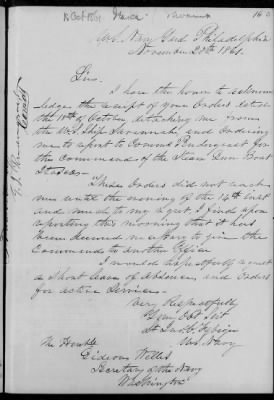 U.S. Navy Yard Philadelphia
November 20th 1861.
Sir:
I have the honor to acknow-
ledge the receipt of your Orders dated
the 18th of October detaching me from
the U.S. Ship Savannah, and ordering
me to report to Comm'd Pendergrast for
the Command of the Steam Gun Boat
Itasca.
These Orders did not reach
me until the evening of the 14th inst
and much to my regret, I find upon
reporting this morning that it has
been deemed necessary to give the
Command to another Officer.
I would respectfully request
a short leave of Absence, and Orders
for active Service.
Very Respectfully
Your Obt Svt
U.S. Navy
The Honble
Gideon Welles
Secretary of the Navy
Washington